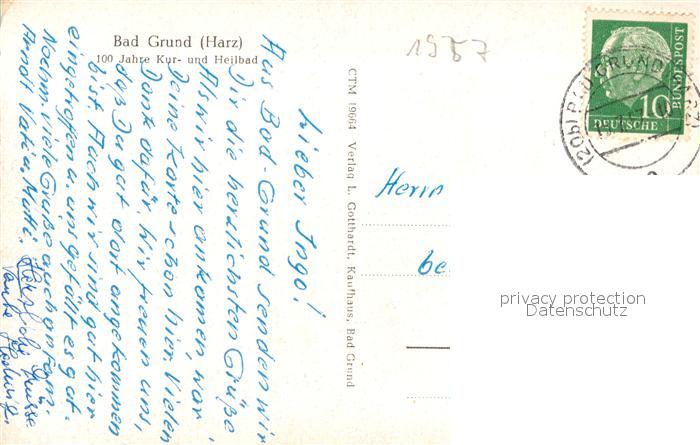 Bad Grund (Harz)
100 Jahre Kur- und Heilbad
1957
Lieber Ingo!
Aus Bad-Grund senden wir
Dir die herzlichsten Grüße
Als wir hier ankamen, war
Deine Karte schon hier. Vielen
Dank dafür. Wir freuen uns,
daß Du gut dort angekommen
bist. Auch wir sind gut hier
eingetroffen u. uns gefällt es gut.
Nochm. viele Grüße auch von
Vati u. Mutti.
Herzliche Grüsse
Tante Hedwig.
CTM 19664 Verlag L. Gotthardt, Kaufhaus, Bad Grund
Herrn
be
DEUTSCHE BUNDESPOST
10
(20b) BAD GRUND (HARZ)
privacy protection
Datenschutz